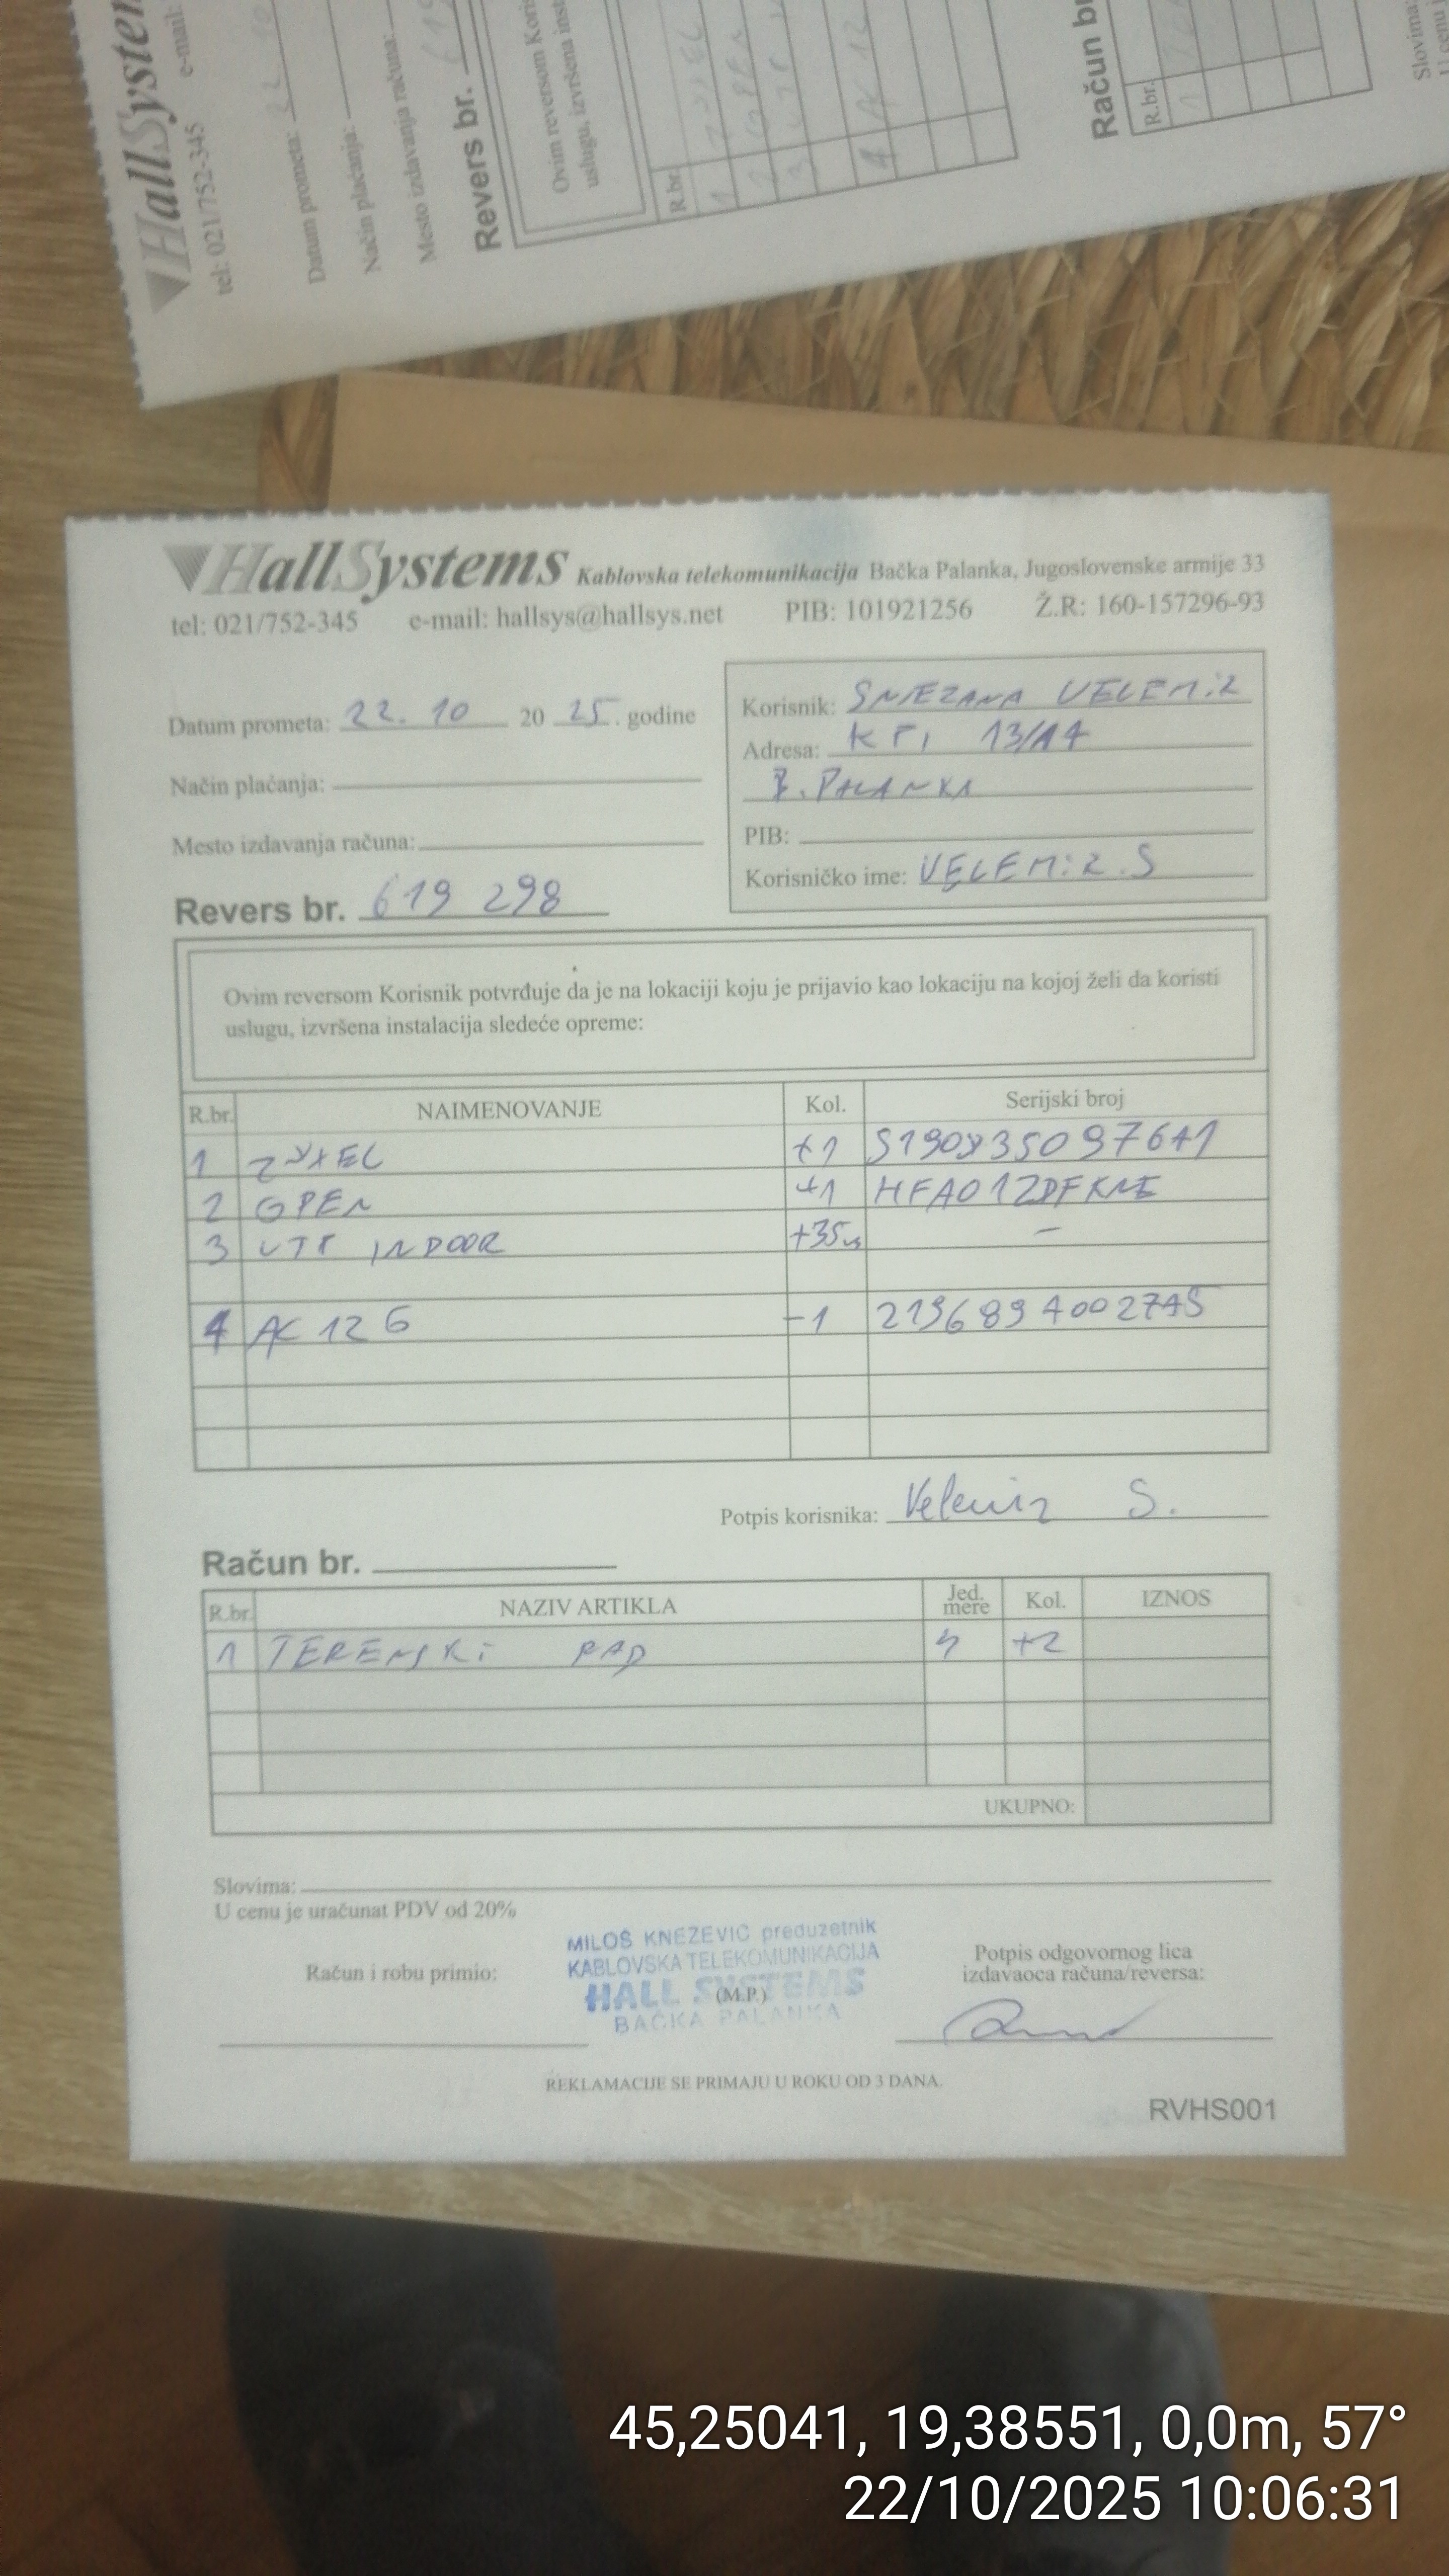 HallSystems Kablovska telekomunikacija Bačka Palanka, Jugoslovenske armije 33
tel: 021/752-345 e-mail: hallsys@hallsys.net PIB: 101921256 Ž.R: 160-157296-93
Datum prometa: 22. 10 20 25. godine
Način plaćanja:
Mesto izdavanja računa:
Revers br. 619 298
Korisnik: SNJEZANA VELEMIR
Adresa: KTI 13/14
B. PALANKA
PIB:
Korisničko ime: VELEMIR.S
Ovim reversom Korisnik potvrđuje da je na lokaciji koju je prijavio kao lokaciju na kojoj želi da koristi
uslugu, izvršena instalacija sledeće opreme:
R.br. NAIMENOVANJE Kol. Serijski broj
1 ZYXEL +1 S190Y35097641
2 GPEN +1 HFA01ZDFKNE
3 UTP INDOOR +35m –
4 AC 12 G -1 2196894002745
Potpis korisnika: Velemir S.
Račun br.
R.br. NAZIV ARTIKLA Jed. mere Kol. IZNOS
1 TERENSKI RAD h +2
UKUPNO:
Slovima:
U cenu je uračunat PDV od 20%
Račun i robu primio:
MILOŠ KNEZEVIC preduzetnik
KABLOVSKA TELEKOMUNIKACIJA
HALL SYSTEMS
(M.P.)
BAČKA PALANKA
Potpis odgovornog lica
izdavaoca računa/reversa:
REKLAMACIJE SE PRIMAJU U ROKU OD 3 DANA.
RVHS001
HallSystem
tel: 021/752-345 e-mail:
Datum prometa: 22 10
Način plaćanja:
Mesto izdavanja računa:
Revers br. 619
Ovim reversom Kori
uslugu, izvršena inst
R.br.
1 ZYXEL
2 GPEN
3 UTP
4 AC 12
Račun br
R.br.
1
Slovima:
U cenu j
45,25041, 19,38551, 0,0m, 57°
22/10/2025 10:06:31